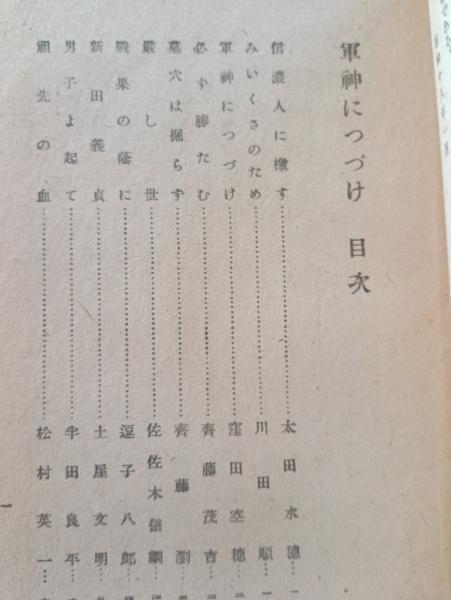 軍神につづけ 目次
信濃人に檄す……太田水穂…
みいくさのため……川田順…
軍神につづけ……窪田空穂…
必ず勝たむ……齊藤茂吉…
墓穴は掘らず……齊藤瀏…
嚴し世……佐佐木信綱…
戰果の蔭に……逗子八郎…
新田義貞……土屋文明…
男子よ起て……半田良平…
祖先の血……松村英一…
一